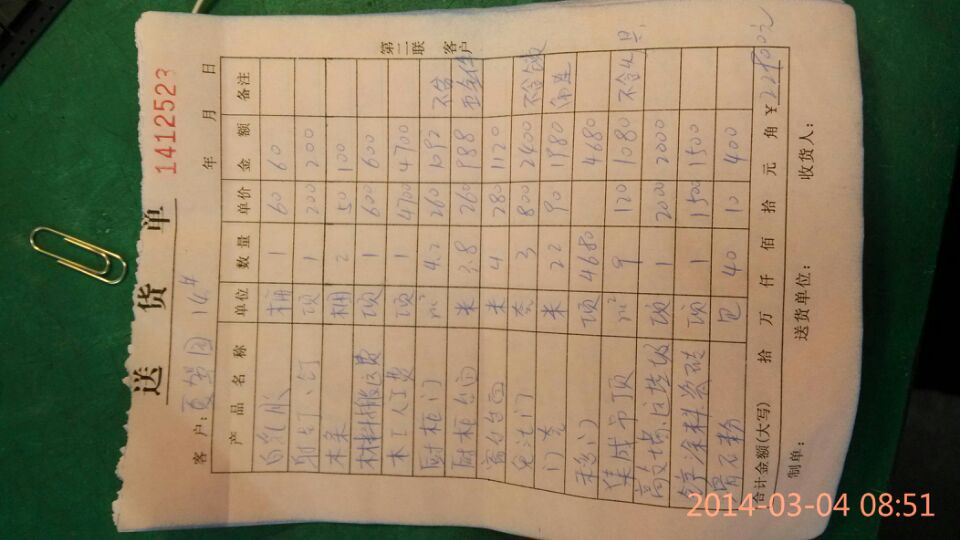 送货单 1412523
客户: 14# 年 月 日
产品名称 单位 数量 单价 金额 备注
白乳胶 桶 1 60 60
钉 项 1 200 200
2 50 100
材料搬运费 项 1 600 600
木工人工费 项 1 4700 4700
厨柜门 m² 4.2 260 1092 不含
厨柜台面 米 3.8 260 988 五金件
窗台台面 米 4 280 1120
免漆门 套 3 800 2400 不含锁
门套 米 22 90 1980
移门 项 4680 4680
集成吊顶 m² 9 120 1080 不含灯具
项 1 2000 2000
项 1 1500 1500
滑石粉 包 40 10 400
合计金额(大写) 拾 万 仟 佰 拾 元 角 ¥ 22900元
制单: 送货单位: 收货人:
第二联 客户
2014-03-04 08:51